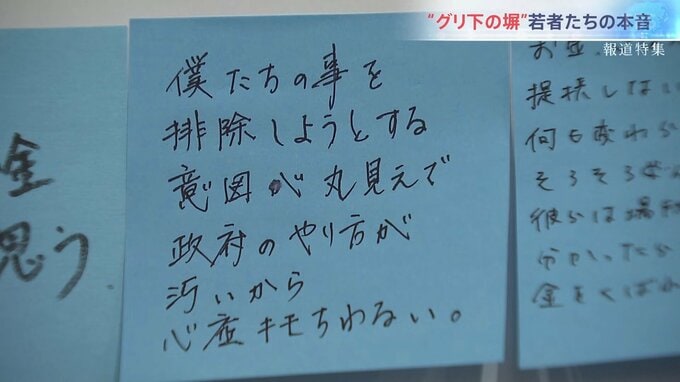 “グリ下の塀”若者たちの本音
報道特集
僕たちの事を
排除しようとする
意図が丸見えで
政府のやり方が
汚いから
心底キモちわるい。
金
思う.
提携しない
何も変わ
そろそろ
彼らは場
金をくばれ